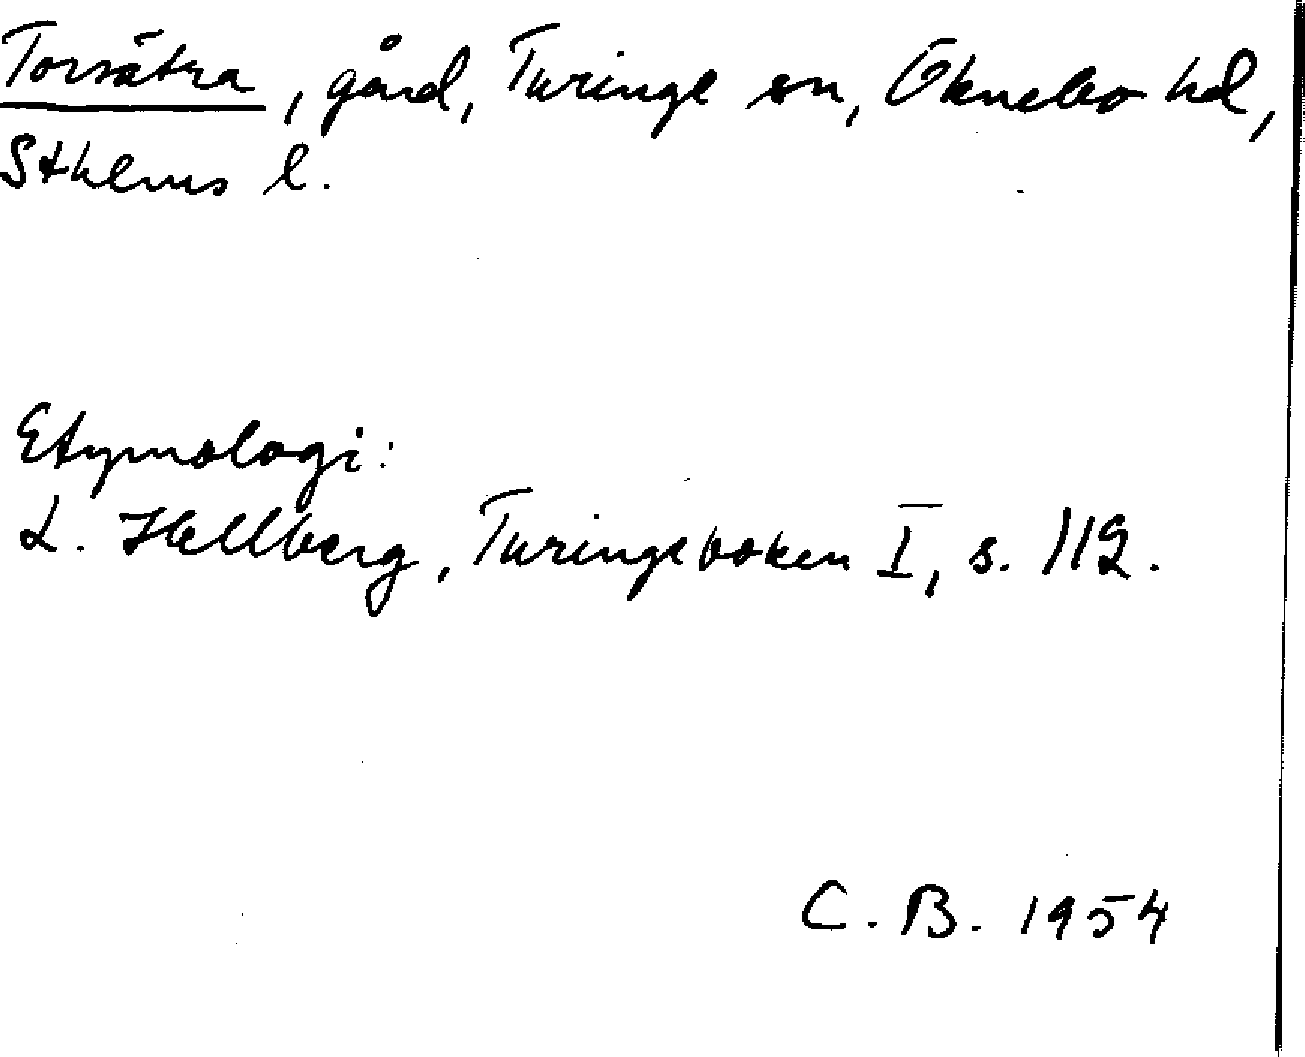 Torsätra, gård, Turinge sn, Öknebo hd,
Sthlms l.
Etymologi:
L. Hellberg, Turingeboken I, s. 112.
C. B. 1954